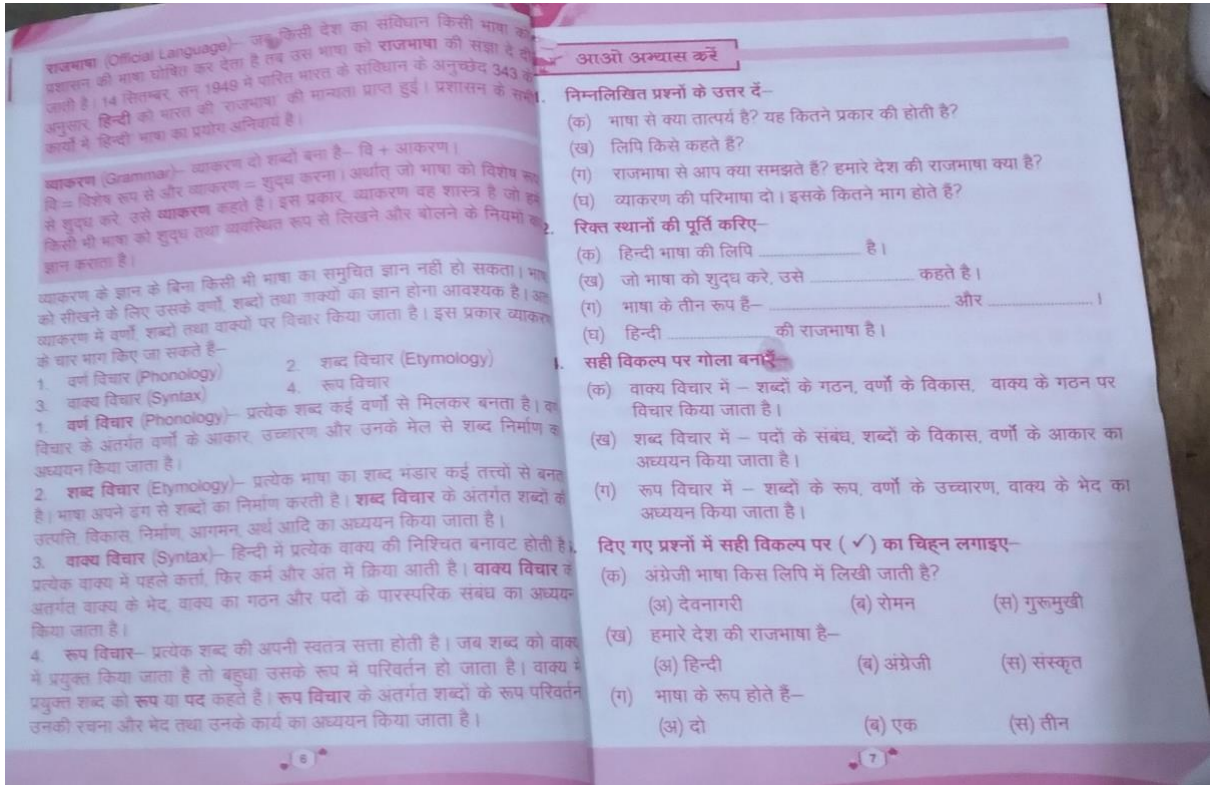 राजभाषा (Official Language)– जब किसी देश का संविधान किसी भाषा को
प्रशासन की भाषा घोषित कर देता है तब उस भाषा को राजभाषा की संज्ञा दे दी
जाती है। 14 सितम्बर, सन् 1949 में पारित भारत के संविधान के अनुच्छेद 343 के
अनुसार, हिन्दी को भारत की राजभाषा की मान्यता प्राप्त हुई। प्रशासन के सभी
कार्यों में हिन्दी भाषा का प्रयोग अनिवार्य है।
व्याकरण (Grammar)– व्याकरण दो शब्दों बना है– वि + आकरण।
वि = विशेष रूप से और व्याकरण = शुद्ध करना। अर्थात् जो भाषा को विशेष रूप
से शुद्ध करे, उसे व्याकरण कहते हैं। इस प्रकार, व्याकरण वह शास्त्र है जो हमें
किसी भी भाषा को शुद्ध तथा व्यवस्थित रूप से लिखने और बोलने के नियमों का
ज्ञान कराता है।
व्याकरण के ज्ञान के बिना किसी भी भाषा का समुचित ज्ञान नहीं हो सकता।
को सीखने के लिए उसके वर्णों, शब्दों तथा वाक्यों का ज्ञान होना आवश्यक है।
व्याकरण में वर्णों, शब्दों तथा वाक्यों पर विचार किया जाता है। इस प्रकार व्याकरण
के चार भाग किए जा सकते हैं–
1. वर्ण विचार (Phonology) 2. शब्द विचार (Etymology)
3. वाक्य विचार (Syntax) 4. रूप विचार
1. वर्ण विचार (Phonology)– प्रत्येक शब्द कई वर्णों से मिलकर बनता है।
विचार के अंतर्गत वर्णों के आकार, उच्चारण और उनके मेल से शब्द निर्माण
अध्ययन किया जाता है।
2. शब्द विचार (Etymology)– प्रत्येक भाषा का शब्द भंडार कई तत्त्वों से बनता
है। भाषा अपने ढंग से शब्दों का निर्माण करती है। शब्द विचार के अंतर्गत शब्दों की
उत्पत्ति, विकास, निर्माण, आगमन, अर्थ आदि का अध्ययन किया जाता है।
3. वाक्य विचार (Syntax)– हिन्दी में प्रत्येक वाक्य की निश्चित बनावट होती है।
प्रत्येक वाक्य में पहले कर्त्ता, फिर कर्म और अंत में क्रिया आती है। वाक्य विचार के
अंतर्गत वाक्य के भेद, वाक्य का गठन और पदों के पारस्परिक संबंध का अध्ययन
किया जाता है।
4. रूप विचार– प्रत्येक शब्द की अपनी स्वतंत्र सत्ता होती है। जब शब्द को वाक्य
में प्रयुक्त किया जाता है तो बहुधा उसके रूप में परिवर्तन हो जाता है। वाक्य में
प्रयुक्त शब्द को रूप या पद कहते हैं। रूप विचार के अंतर्गत शब्दों के रूप परिवर्तन
उनकी रचना और भेद तथा उनके कार्य का अध्ययन किया जाता है।
6
आओ अभ्यास करें
1. निम्नलिखित प्रश्नों के उत्तर दें–
(क) भाषा से क्या तात्पर्य है? यह कितने प्रकार की होती है?
(ख) लिपि किसे कहते है?
(ग) राजभाषा से आप क्या समझते हैं? हमारे देश की राजभाषा क्या है?
(घ) व्याकरण की परिभाषा दो। इसके कितने भाग होते हैं?
2. रिक्त स्थानों की पूर्ति करिए–
(क) हिन्दी भाषा की लिपि ............ है।
(ख) जो भाषा को शुद्ध करे, उसे ............ कहते है।
(ग) भाषा के तीन रूप हैं– ............ और ............ ।
(घ) हिन्दी ............ की राजभाषा है।
सही विकल्प पर गोला बनाएँ–
(क) वाक्य विचार में – शब्दों के गठन, वर्णों के विकास, वाक्य के गठन पर
विचार किया जाता है।
(ख) शब्द विचार में – पदों के संबंध, शब्दों के विकास, वर्णों के आकार का
अध्ययन किया जाता है।
(ग) रूप विचार में – शब्दों के रूप, वर्णों के उच्चारण, वाक्य के भेद का
अध्ययन किया जाता है।
दिए गए प्रश्नों में सही विकल्प पर (✓) का चिह्न लगाइए–
(क) अंग्रेजी भाषा किस लिपि में लिखी जाती है?
(अ) देवनागरी (ब) रोमन (स) गुरूमुखी
(ख) हमारे देश की राजभाषा है–
(अ) हिन्दी (ब) अंग्रेजी (स) संस्कृत
(ग) भाषा के रूप होते हैं–
(अ) दो (ब) एक (स) तीन
7